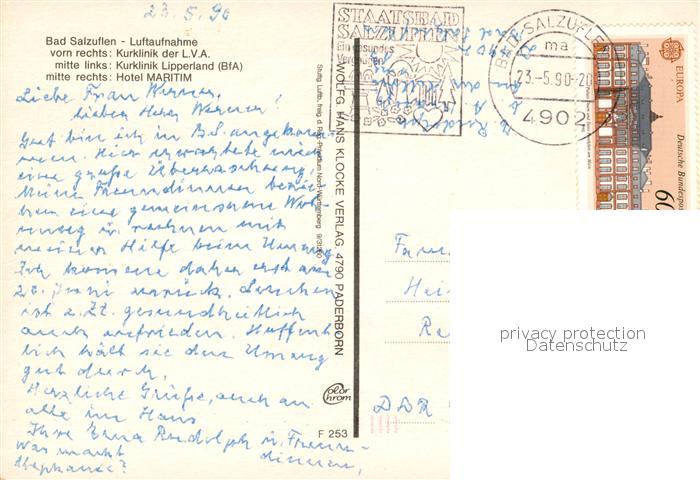 23.5.90
Bad Salzuflen - Luftaufnahme
vorn rechts: Kurklinik der L.V.A.
mitte links: Kurklinik Lipperland (BfA)
mitte rechts: Hotel MARITIM
Liebe Frau Werner,
lieber Herr Werner!
Gut bin ich in B.S. angekom-
men. Hier erwartete mich
eine große Überraschung.
Meine Freundinnen
haben eine gemeinsame Woh-
nung u. rechnen mit
meiner Hilfe beim Umzug.
Ich komme daher erst am
28. Juni zurück.
ist z. Zt. gesundheitlich
auch zufrieden. Hoffent-
lich hält sie den Umzug
gut durch.
Herzliche Grüße, auch an
alle im Haus
Ihre Erna Rudolph u. Freun-
dinnen.
was macht
Stephanie?
Stuttg. Luftb. freig. d. Reg.-Präsidium Nord-Württemberg
WOLFG. HANS KLOCKE VERLAG 4790 PADERBORN
color
chrom
F 253
STAATSBAD
SALZUFLEN
Ein gesundes
Vergnügen
BAD SALZUFLEN
ma
23.-5.90-20
4902
EUROPA
Deutsche Bundespost
60
Fam
Hei
Ra
DDR
privacy protection
Datenschutz